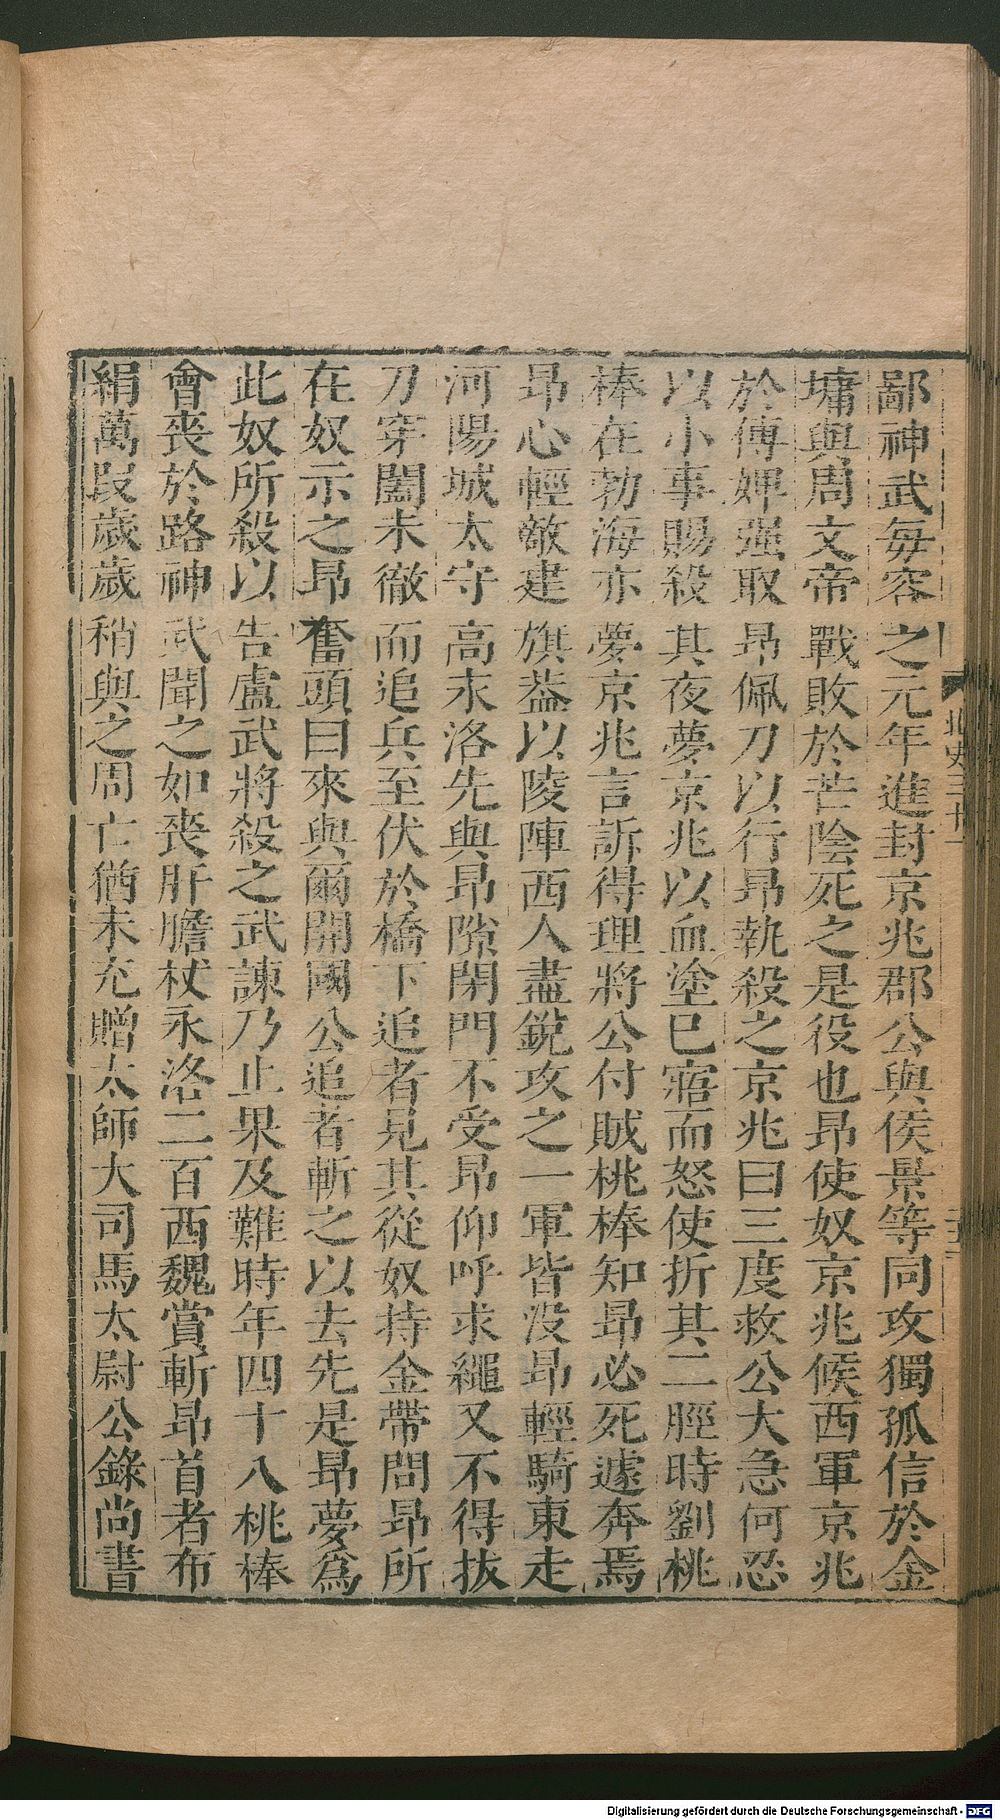 鄙神武每容之元年進封京兆郡公與侯景等同攻獨孤信於金
墉與周文帝戰敗於芒陰死之是役也昂使奴京兆候西軍京兆
於傅婢强取昂佩刀以行昂執殺之京兆曰三度救公大急何忍
以小事賜殺其夜夢京兆以血塗己寤而怒使折其二脛時劉桃
棒在勃海亦夢京兆言訴得理將公付賊桃棒知昂必死遽奔焉
昂心輕敵建旗蓋以陵陣西人盡銳攻之一軍皆没昂輕騎東走
河陽城太守高永洛先與昂隙閉門不受昂仰呼求繩又不得拔
刀穿闔未徹而追兵至伏於橋下追者見其從奴持金帶問昂所
在奴示之昂奮頭曰來與爾開國公追者斬之以去先是昂夢爲
此奴所殺以告盧武將殺之武諫乃止果及難時年四十八桃棒
會喪於路神武聞之如喪肝膽杖永洛二百西魏賞斬昂首者布
絹萬段歲歲稍與之周亡猶未充贈太師大司馬太尉公錄尚書
北史三十一
Digitalisierung gefördert durch die Deutsche Forschungsgemeinschaft - DFG